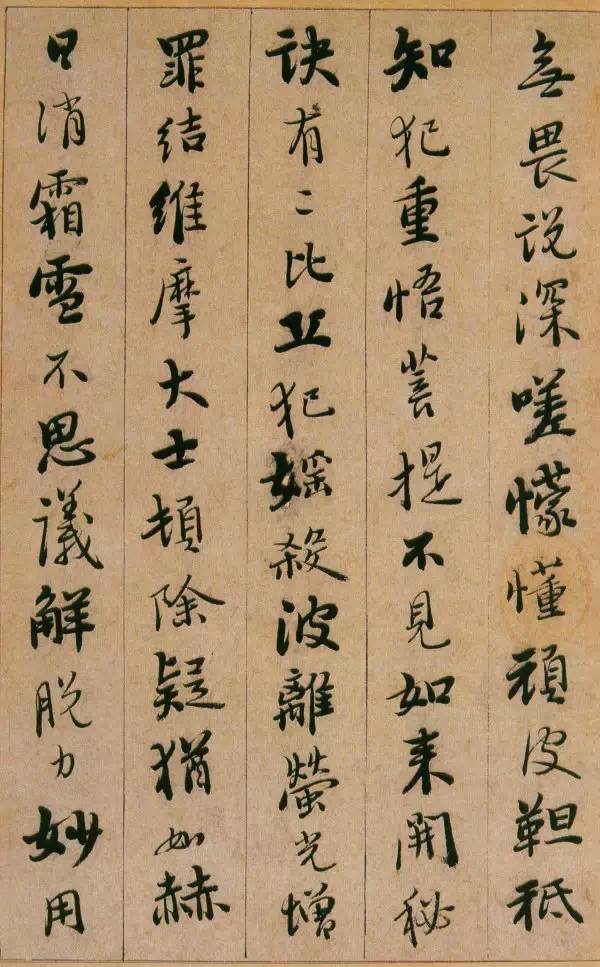 無畏说深嗟懞懂頑皮靼秪
知犯重悟菩提不見如来開秘
訣有二比丘犯婬殺波離螢光增
罪结維摩大士頓除疑猶如赫
日消霜雪不思議解脱力妙用